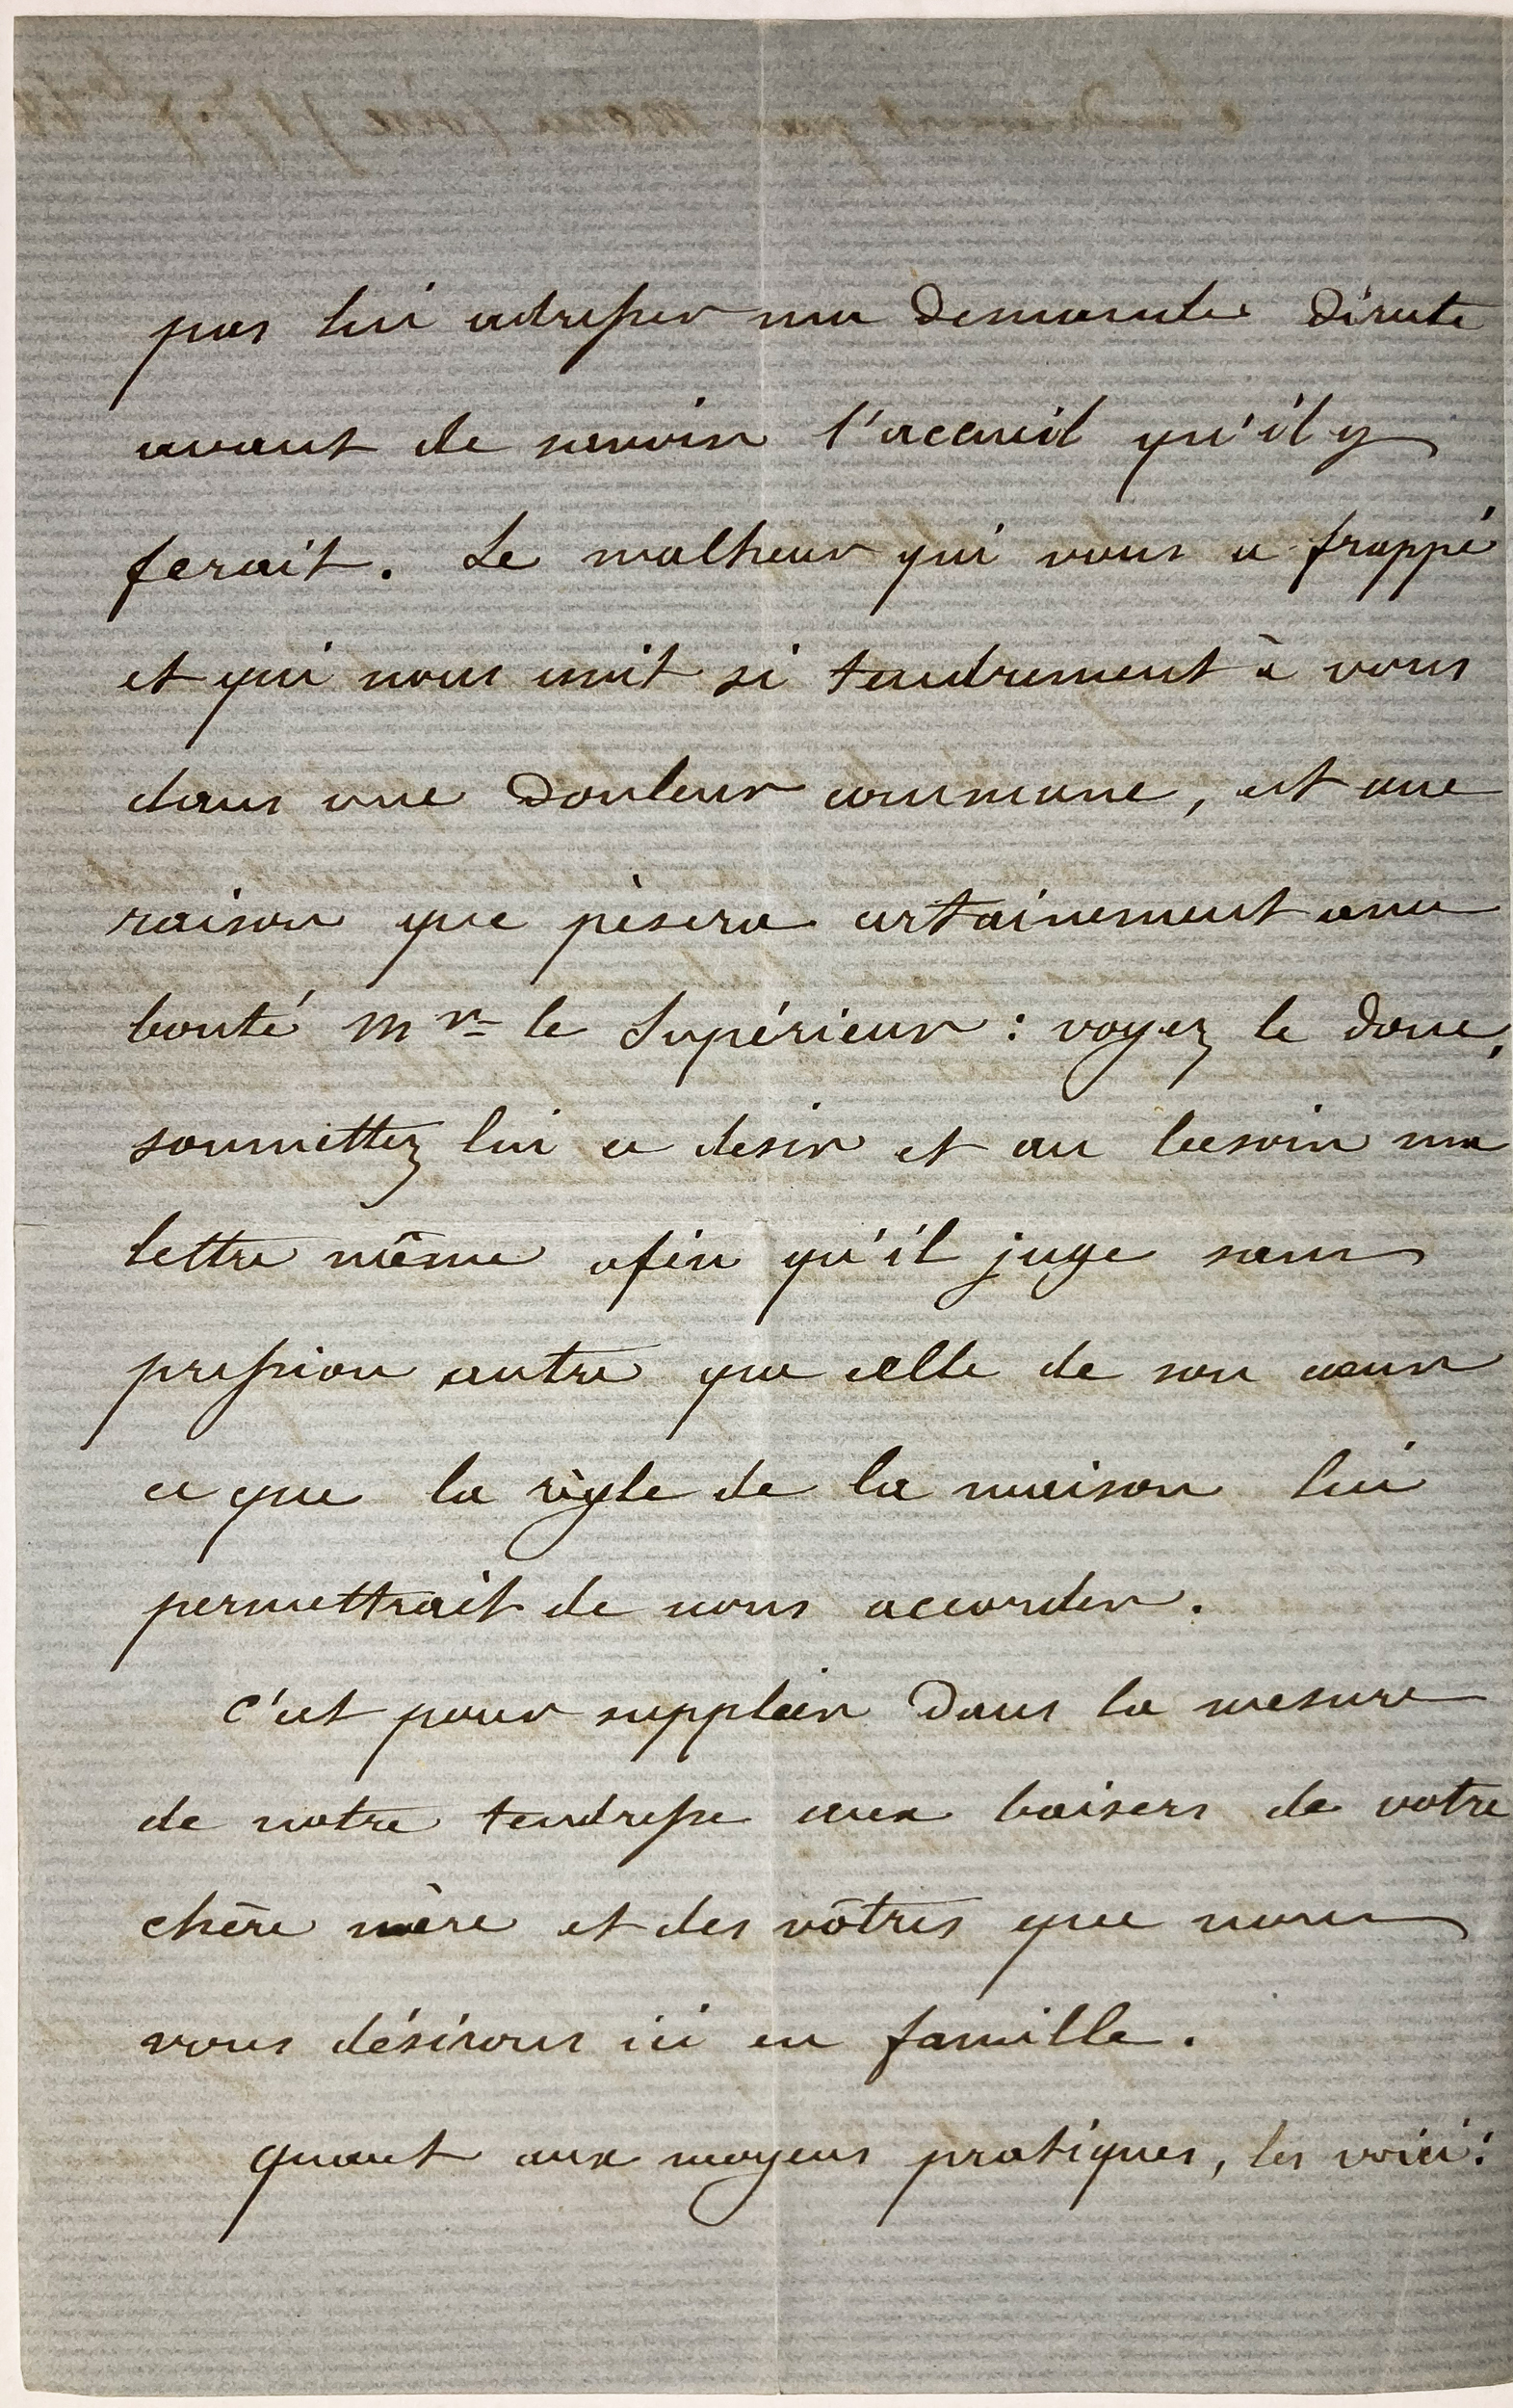 pas lui adresser ma demande directe
avant de savoir l'accueil qu'il y
ferait. Le malheur qui vous a frappé
et qui nous unit si tendrement à vous
dans une douleur commune, est une
raison que pèsera certainement avec
bonté Mr le Supérieur : voyez le donc,
soumettez lui ce desir et au besoin ma
lettre même afin qu'il juge sans
pression autre que celle de son cœur
ce que la règle de la maison lui
permettrait de nous accorder.
C'est pour suppléer dans la mesure
de notre tendresse aux baisers de votre
chère mère et des vôtres que nous
vous désirons ici en famille.
Quant aux moyens pratiques, les voici :